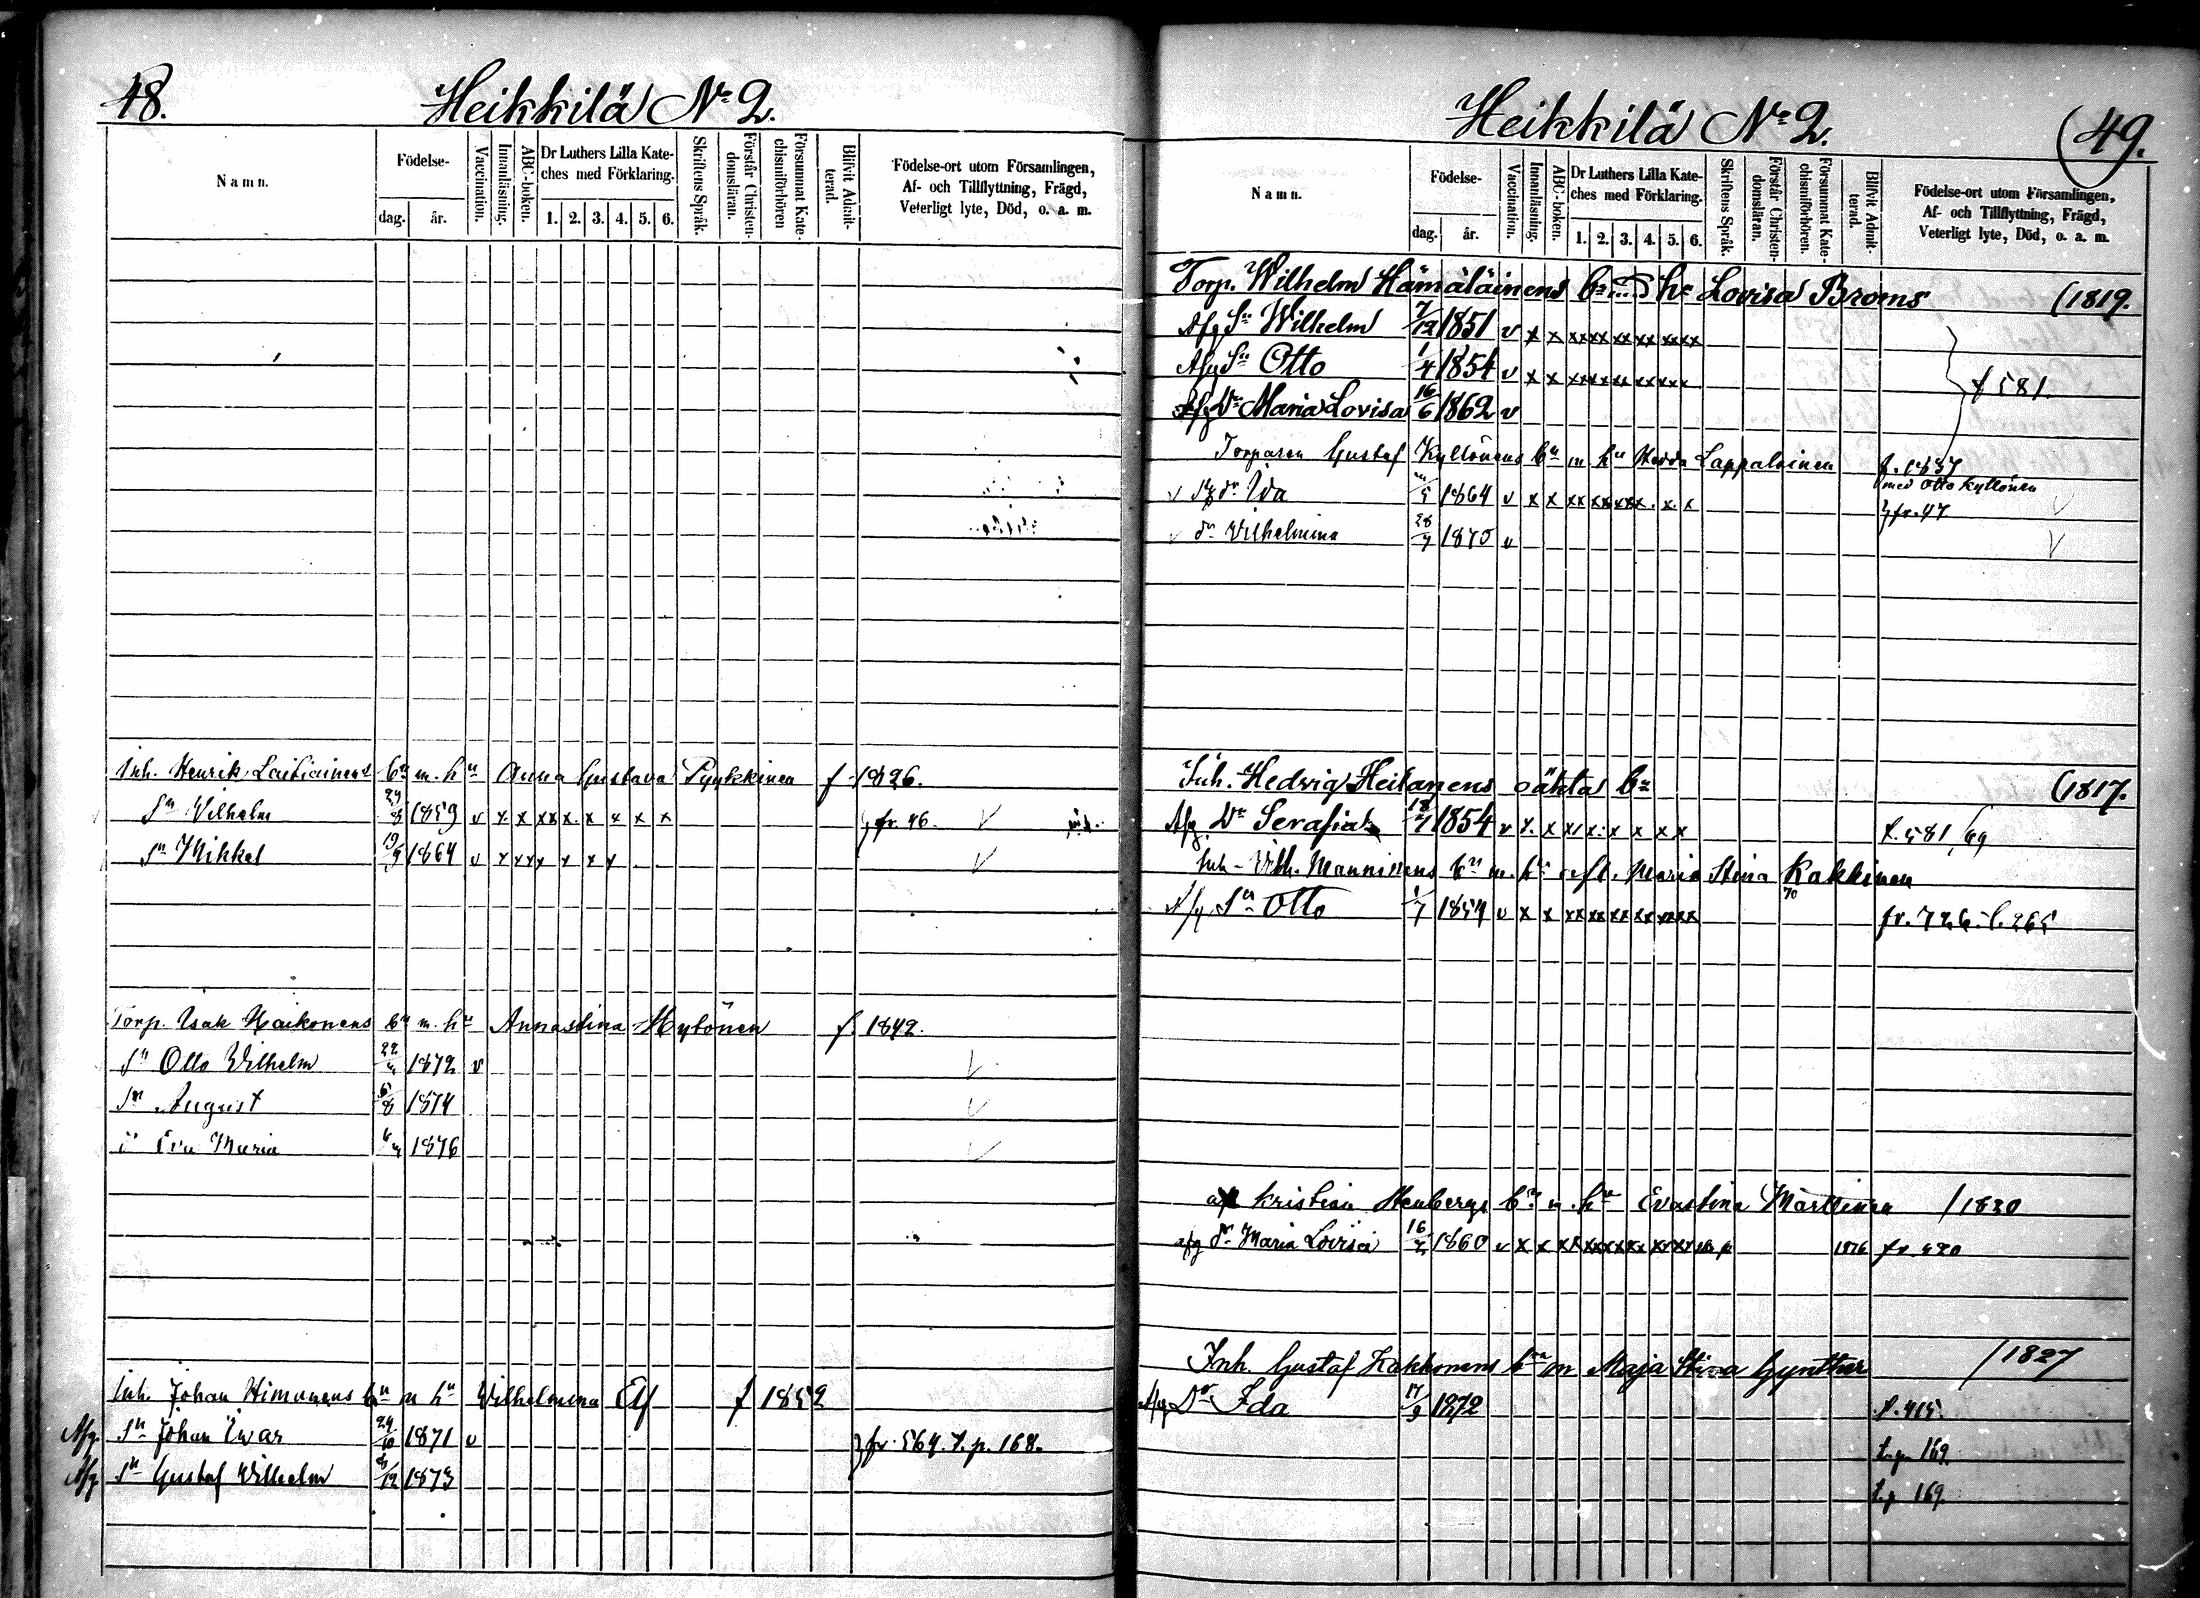 48.
Heikkilä No 2.
Namn.
Födelse-
dag. år.
Vaccination.
Innanläsning.
ABC-boken.
Dr Luthers Lilla Kate-
ches med Förklaring.
1. 2. 3. 4. 5. 6.
Skriftens Språk.
Förstår Christen-
domsläran.
Försummat Kate-
chismiförhören
Blifvit Admit-
terad.
Födelse-ort utom Församlingen,
Af- och Tillflyttning, Frägd,
Veterligt lyte, Död, o. a. m.
Inh. Henrik Lautiainens bn m. hu Anna Gustava Pynkkinen f 1826.
Sn Vilhelm 1859 v x x xx x x x x x fr. 46.
Sn Mikkel 19/9 1864 v x x x x x x x
Torp. Isak Haikonens bn m. hu Annastina Hytönen f. 1842.
Sn Otto Vilhelm 1872 v
Sn August 1874
Eva Maria 1876
Inh. Johan Himunens bn m hu Wilhelmina Elf f 1852
Afg. Sn Johan Ivar 24/10 1871 v fr. 564. t. p. 168.
Afg Sn Gustaf Vilhelm 8/12 1873
Heikkilä No 2.
49.
Namn.
Födelse-
dag. år.
Vaccination.
Innanläsning.
ABC-boken.
Dr Luthers Lilla Kate-
ches med Förklaring.
1. 2. 3. 4. 5. 6.
Skriftens Språk.
Förstår Christen-
domsläran.
Försummat Kate-
chismiförhören.
Blifvit Admit-
terad.
Födelse-ort utom Församlingen,
Af- och Tillflyttning, Frägd,
Veterligt lyte, Död, o. a. m.
Torp. Wilhelm Hämäläinens bn hu Lovisa Broms (1819.
Afg Sn Wilhelm 7/12 1851 v x x xx xx xx xx xx xx
Afg Sn Otto 1/4 1854 v x x xx xx xx xx xx x t 581.
Afg Dr Maria Lovisa 16/6 1862 v
Torparen Gustaf Kyllönens bn m hu Hedda Lappalainen f. 1837
dr Ida 1864 v x x xx xx xxx . x. x med Otto Kyllönen
fr. 47.
dr Vilhelmina 28/7 1870 v
Inh. Hedvig Heikanens oäkta bn (1817.
Afg. Dr Serafia 18/7 1854 v x. x xx x. x x x x t. 581/69
Inh. Vilh. Manninens bn m. hu Maria Stina Kakkinen
Afg. Sn Otto 1/7 1854 v x x xx xx xx xx xx xx 70 fr. 726. t. 265
Kristian Stenbergs bn m. hu Evastina Martinen /1830
afg dr Maria Lovisa 16/2 1860 v x x xx xx xx xx xx xx 1876 fr. 420
Inh. Gustaf Kakkonens bn m Maja Stina Gynther /1827
Afg Dr Ida 17/9 1872 t. 415.
t. p. 169.
t. p. 169.